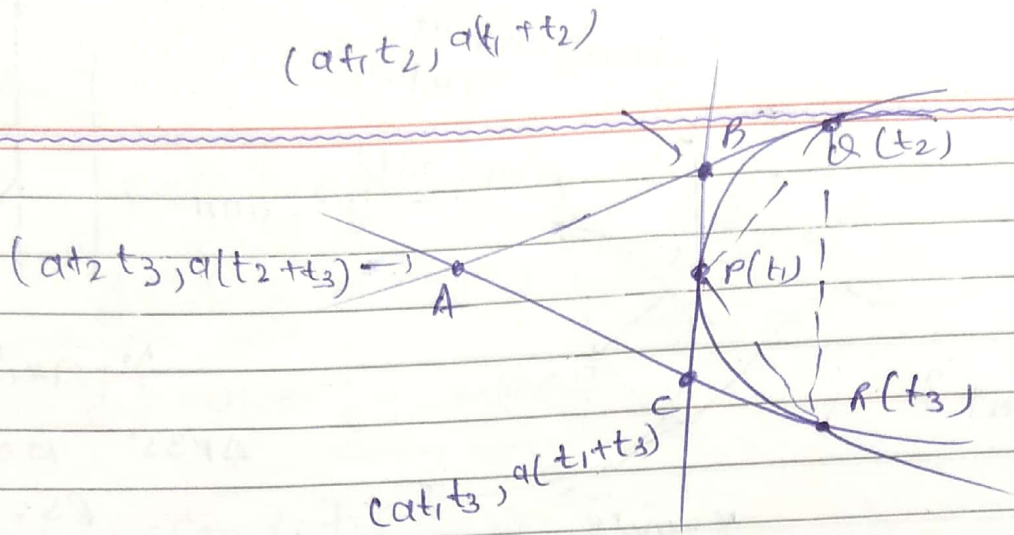 (at₁t₂, a(t₁+t₂)
B
Q(t₂)
(at₂t₃, a(t₂+t₃)
P(t₁)
A
C
R(t₃)
(at₁t₃, a(t₁+t₃)